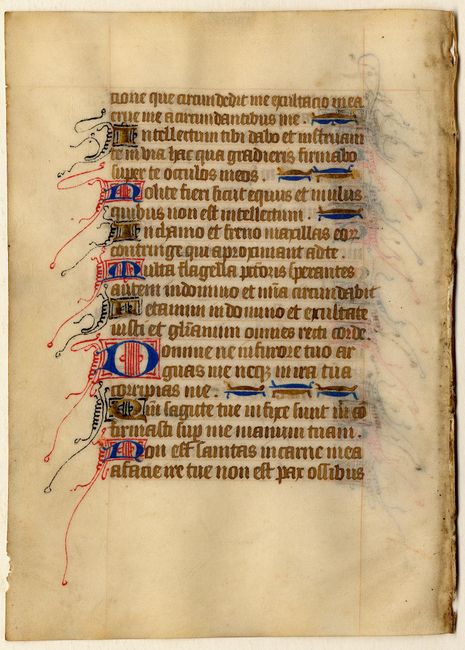 cione que circundedit me exultacio mea
erue me a circundantibus me .
Intellectum tibi dabo et instruam
te in via hac qua gradieris firmabo
super te occulos meos .
Nolite fieri sicut equus et mulus
quibus non est intellectum .
In chamo et freno maxillas eor
constringe qui aproximant ad te .
Multa flagella pctoris sperantes
autem in domino et mia circundabit
Letamini in domino et exultate
iusti et gliamini omnes recti corde .
Domine ne in furore tuo ar
guas me neqz in ira tua
corripias me .
Qm sagitte tue infixe sunt m co
firmasti sup me manum tuam .
Non est sanitas in carne mea
a facie ire tue non est pax ossibus